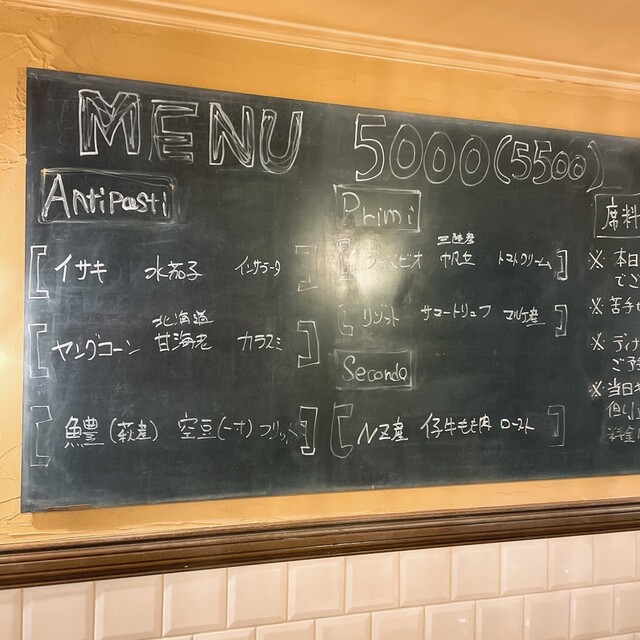 MENU 5000(5500)
Antipasti
[イサキ 水茄子 インサラータ]
北海道
[ヤングコーン 甘海老 カラスミ]
[鱧(萩産) 空豆(一寸) フリット]
Primi
三陸産
ビオ 帆立 トマトクリーム]
[リゾット サマートリュフ マルケ産]
Secondo
[NZ産 仔牛もも肉 ロースト]
席料
※本日
でご
※苦手
※ディナ
ご予
※当日
但し
料金